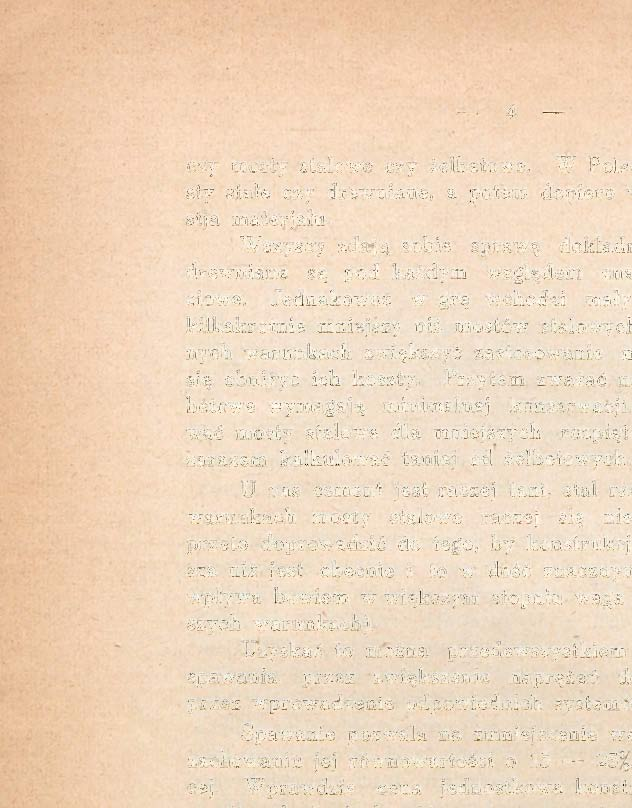 — 4 —
czy mosty stalowe czy żelbetowe. W Pols
sty stałe czy drewniane, a potem dopiero
stja materjału.
Wszyscy zdają sobie sprawę dokładn
drewniane są pod każdym względem
Jednakowoż w grę wchodzi
kilkakrotnie mniejszy niż mostów stalowych
nych warunkach zwiększyć zastosowanie
się obniżyć ich koszty. Przytem zważać
betowe wymagają minimalnej konserwacji
wać mosty stalowe dla mniejszych rozpięt
zarazem kalkulować taniej od żelbetowych.
U nas cement jest raczej tani, stal
warunkach mosty stalowe raczej się nie
przeto doprowadzić do tego, by konstrukcj
sza niż jest obecnie i to w dość znaczny
wpływa bowiem w większym stopniu waga
szych warunkach).
Uzyskać to można przedewszystkiem
spawania przez zwiększenie naprężeń
przez wprowadzenie odpowiednich systemó
Spawanie pozwala na zmniejszenie
zachowaniu jej równowartości o 15 — 25%
cej. Wprawdzie cena jednostkowa konst